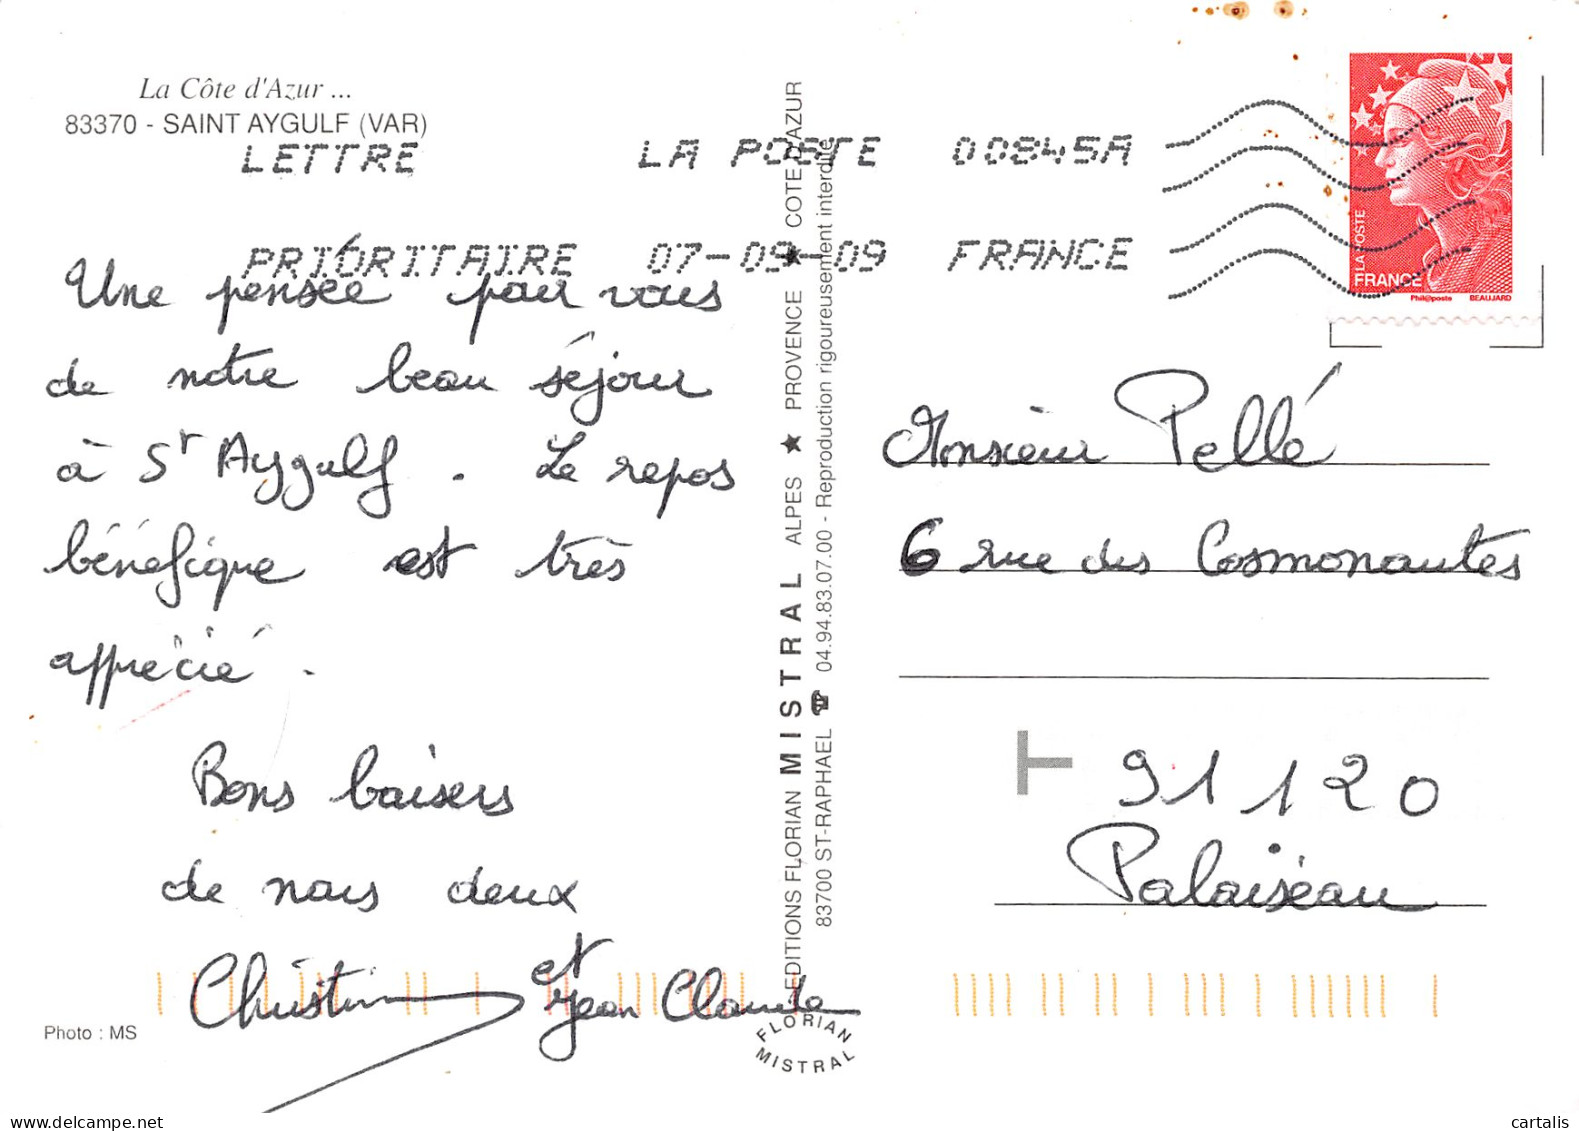 La Côte d'Azur ...
83370 - SAINT AYGULF (VAR)
LETTRE
PRIORITAIRE
LA POSTE
07-09-09
00845A
FRANCE
LA POSTE
FRANCE
Phil@poste BEAUJARD
Une pensée pour vous
de notre beau séjour
à St Aygulf. Le repos
bénéfique est très
apprécié.
Bons baisers
de nous deux
Christine et
Jean Claude
Photo : MS
EDITIONS FLORIAN MISTRAL ALPES ★ PROVENCE ★ COTE D'AZUR
83700 ST-RAPHAEL ☎ 04.94.83.07.00 - Reproduction rigoureusement interdite
FLORIAN
MISTRAL
Monsieur Pellé
6 rue des Cosmonautes
T
91120
Palaiseau
delcampe.net
cartalis